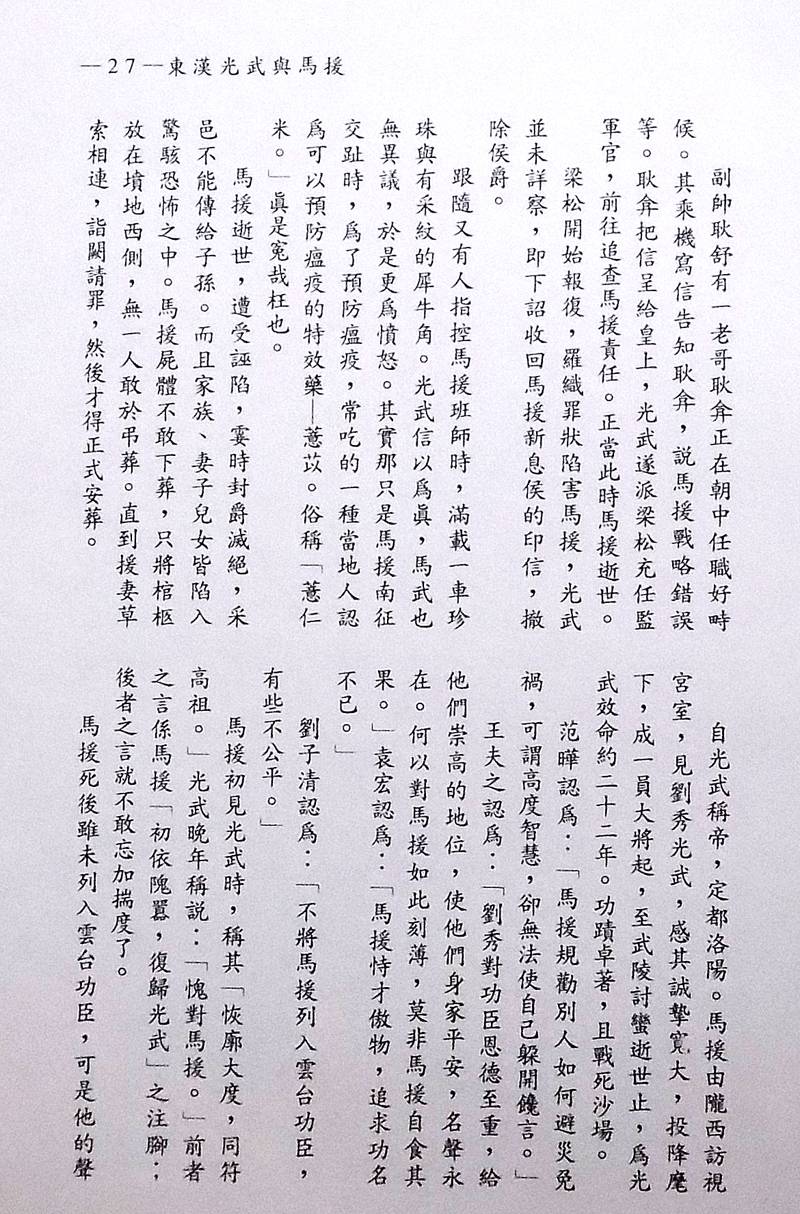 —27—東漢光武與馬援
副帥耿舒有一老哥耿弇正在朝中任職好畤
候。其乘機寫信告知耿弇，說馬援戰略錯誤
等。耿弇把信呈給皇上，光武遂派梁松充任監
軍官，前往追查馬援責任。正當此時馬援逝世。
梁松開始報復，羅織罪狀陷害馬援，光武
並未詳察，即下詔收回馬援新息侯的印信，撤
除侯爵。
跟隨又有人指控馬援班師時，滿載一車珍
珠與有采紋的犀牛角。光武信以爲眞，馬武也
無異議，於是更爲憤怒。其實那只是馬援南征
交趾時，爲了預防瘟疫，常吃的一種當地人認
爲可以預防瘟疫的特效藥—薏苡。俗稱「薏仁
米。」眞是冤哉枉也。
馬援逝世，遭受誣陷，霎時封爵滅絕，采
邑不能傳給子孫。而且家族、妻子兒女皆陷入
驚駭恐怖之中。馬援屍體不敢下葬，只將棺柩
放在墳地西側，無一人敢於弔葬。直到援妻草
索相連，詣闕請罪，然後才得正式安葬。
自光武稱帝，定都洛陽。馬援由隴西訪視
宮室，見劉秀光武，感其誠摯寬大，投降麾
下，成一員大將起，至武陵討蠻逝世止，爲光
武效命約二十二年。功蹟卓著，且戰死沙場。
范曄認爲：「馬援規勸別人如何避災免
禍，可謂高度智慧，卻無法使自己躲開饞言。」
王夫之認爲：「劉秀對功臣恩德至重，給
他們崇高的地位，使他們身家平安，名聲永
在。何以對馬援如此刻薄，莫非馬援自食其
果。」袁宏認爲：「馬援恃才傲物，追求功名
不已。」
劉子清認爲：「不將馬援列入雲台功臣，
有些不公平。」
馬援初見光武時，稱其「恢廓大度，同符
高祖。」光武晚年稱說：「愧對馬援。」前者
之言係馬援「初依隗囂，復歸光武」之注腳；
後者之言就不敢忘加揣度了。
馬援死後雖未列入雲台功臣，可是他的聲